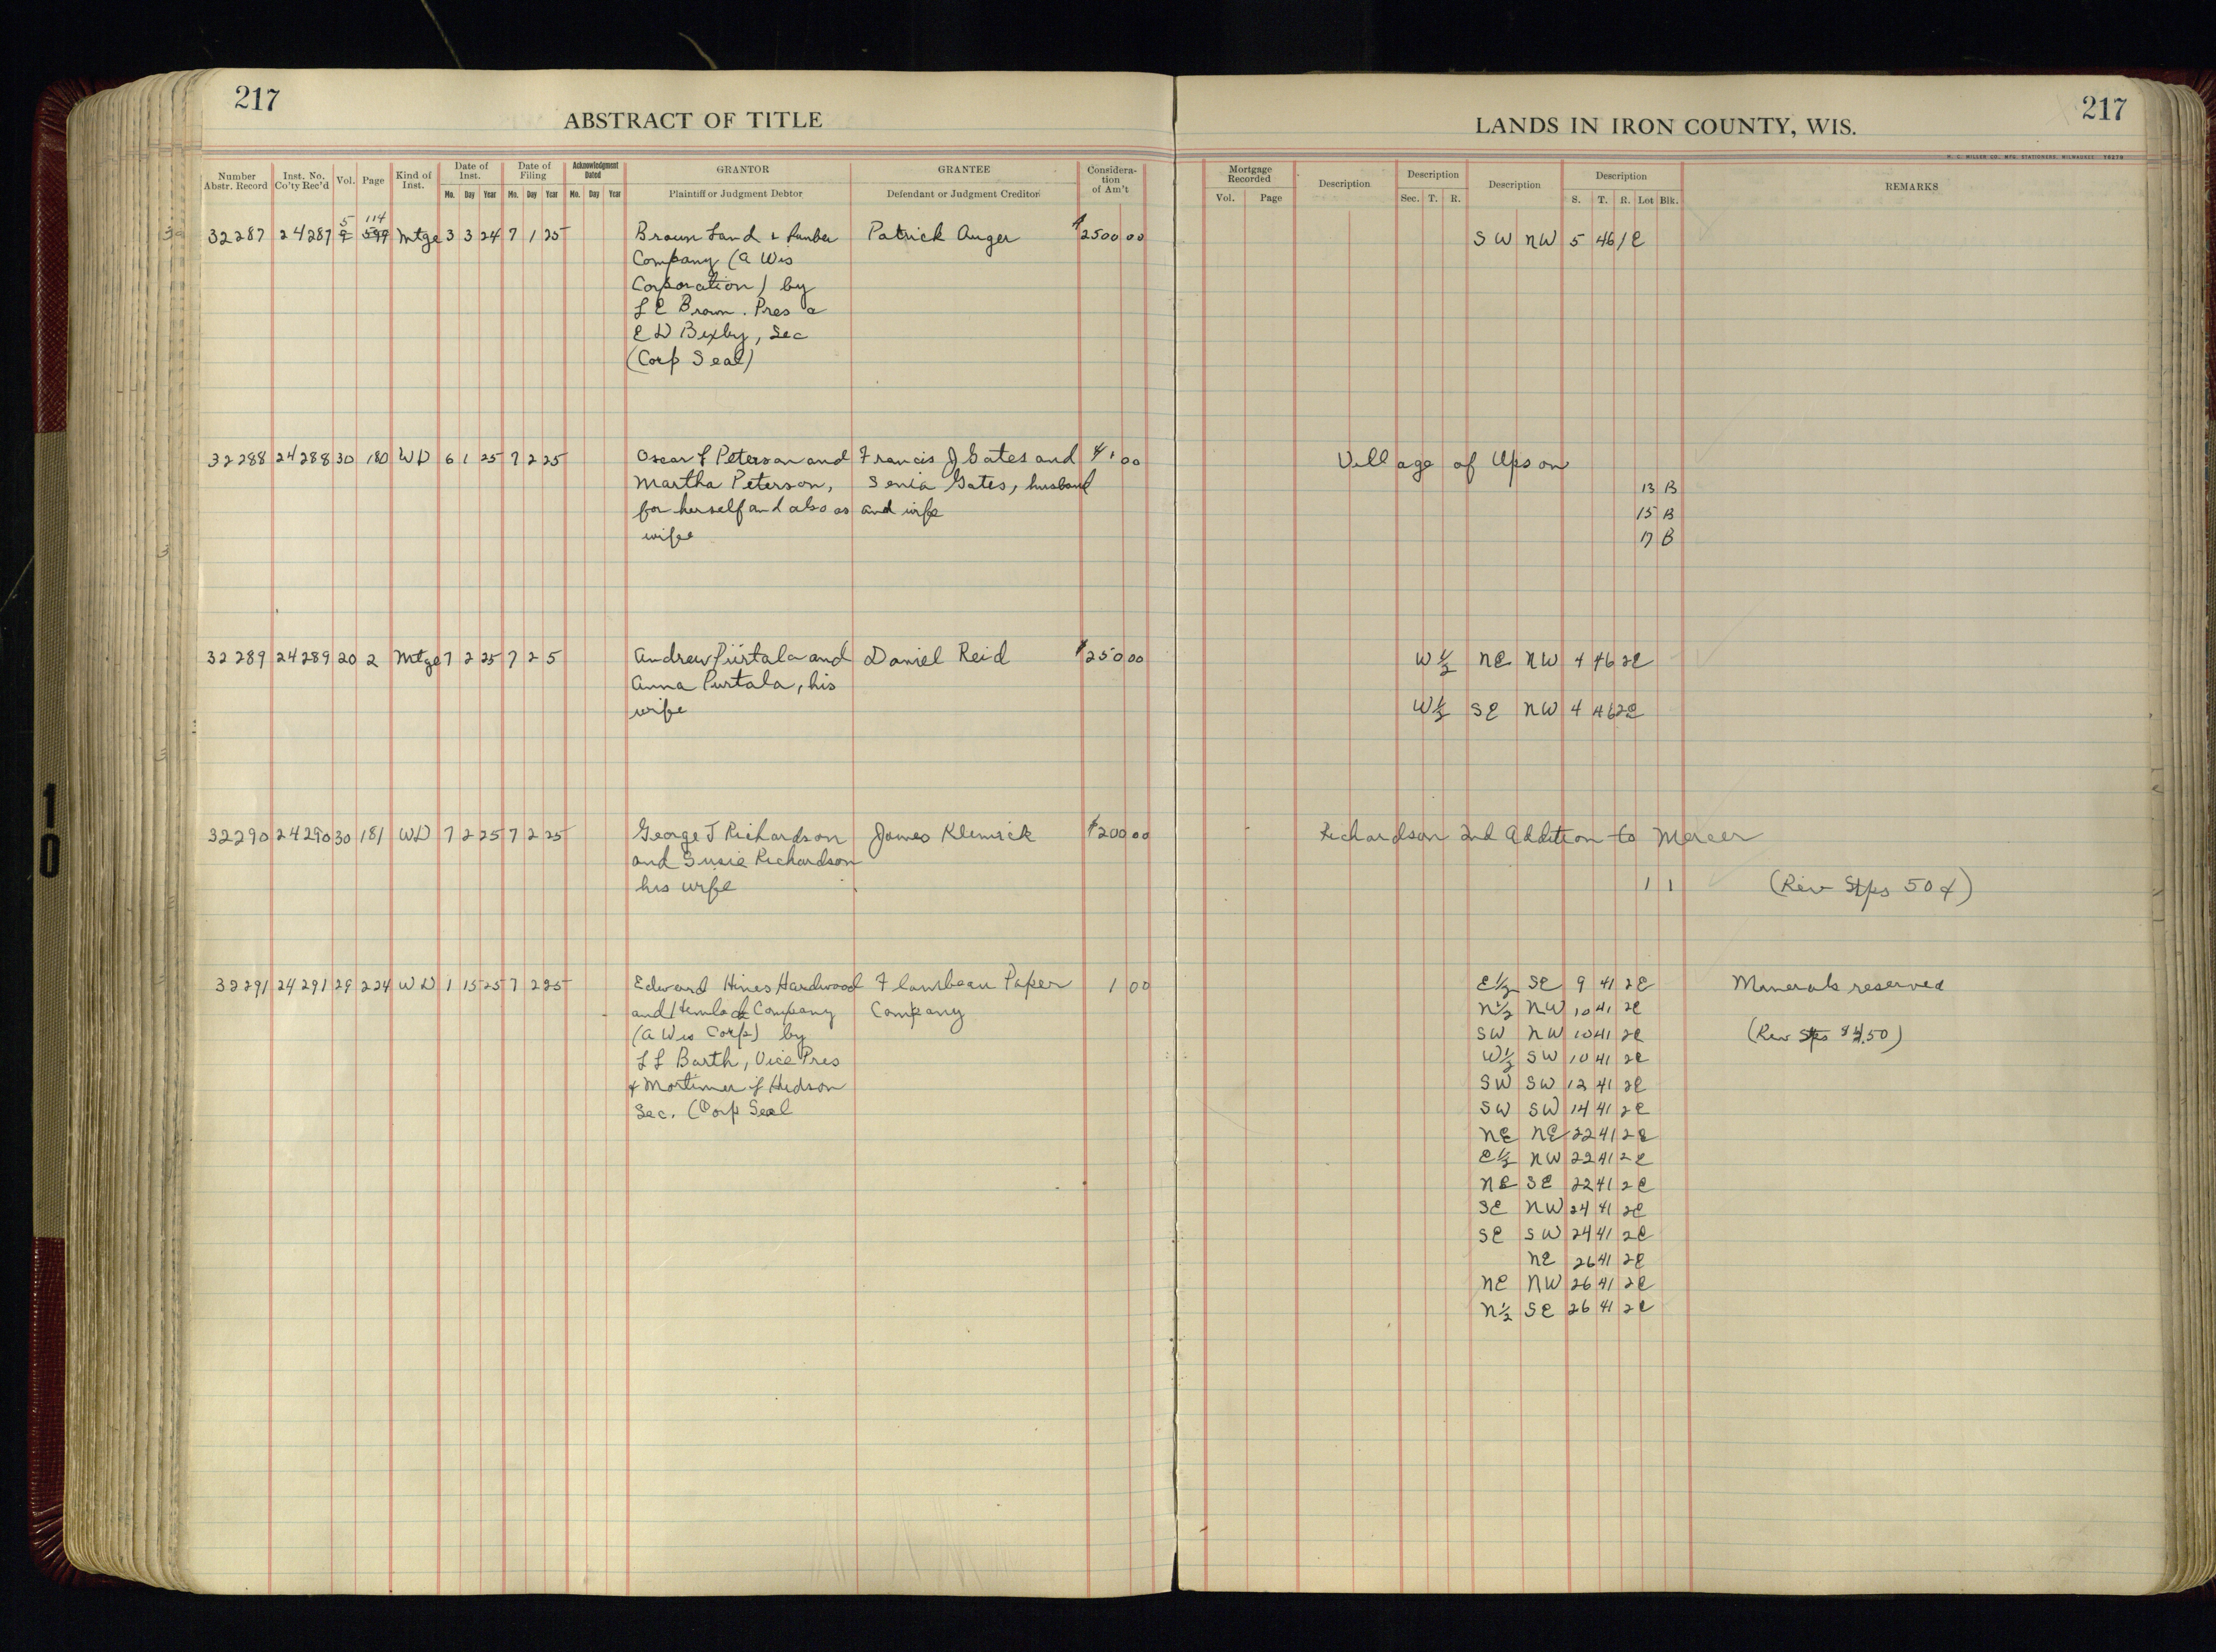 217
ABSTRACT OF TITLE
Number Abstr. Record
Inst. No. Co'ty Rec'd
Vol.
Page
Kind of Inst.
Date of Inst.
Mo. Day Year
Date of Filing
Mo. Day Year
Acknowledgment Dated
Mo. Day Year
GRANTOR
Plaintiff or Judgment Debtor
GRANTEE
Defendant or Judgment Creditor
Considera-
tion
of Am't
5 114
32287 24287 9 599 Mtge 3 3 24 7 1 25 Brown Land & Lumber Patrick Auger $2500 00
Company (a Wis
Corporation) by
L E Brown. Pres a
E D Bixby, Sec
(Corp Seal)
32288 24288 30 180 WD 6 1 25 7 2 25 Oscar L Peterson and Francis J Gates and $1 00
Martha Peterson, Senia Gates, husband
for herself and also as and wife
wife
32289 24289 20 2 Mtge 7 2 25 7 2 5 Andrew Piirtala and Daniel Reid $250 00
Anna Purtala, his
wife
32290 24290 30 181 WD 7 2 25 7 2 25 George T Richardson James Klemick $200 00
and Susie Richardson
his wife
32291 24291 29 224 WD 1 15 25 7 2 25 Edward Hines Hardwood Flambeau Paper 1 00
and Hemlock Company Company
(a Wis Corp) by
L L Barth, Vice Pres
& Mortimer J Hudson
Sec. (Corp Seal
10
LANDS IN IRON COUNTY, WIS.
217
H. C. MILLER CO. MFG. STATIONERS, MILWAUKEE
Mortgage Recorded
Vol. Page
Description
Description
Sec. T. R.
Description
Description
S. T. R. Lot Blk.
REMARKS
SW NW 5 46 1E
Village of Upson
13 B
15 B
17 B
W½ NE NW 4 46 2E
W½ SE NW 4 46 2E
Richardson 2nd Addition to Mercer
1 1 (Rev Stps 50¢)
E½ SE 9 41 2E Minerals reserved
N½ NW 10 41 2E
SW NW 10 41 2E (Rev Stps $4.50)
W½ SW 10 41 2E
SW SW 12 41 2E
SW SW 14 41 2E
NE NE 22 41 2E
E½ NW 22 41 2E
NE SE 22 41 2E
SE NW 24 41 2E
SE SW 24 41 2E
NE 26 41 2E
NE NW 26 41 2E
N½ SE 26 41 2E